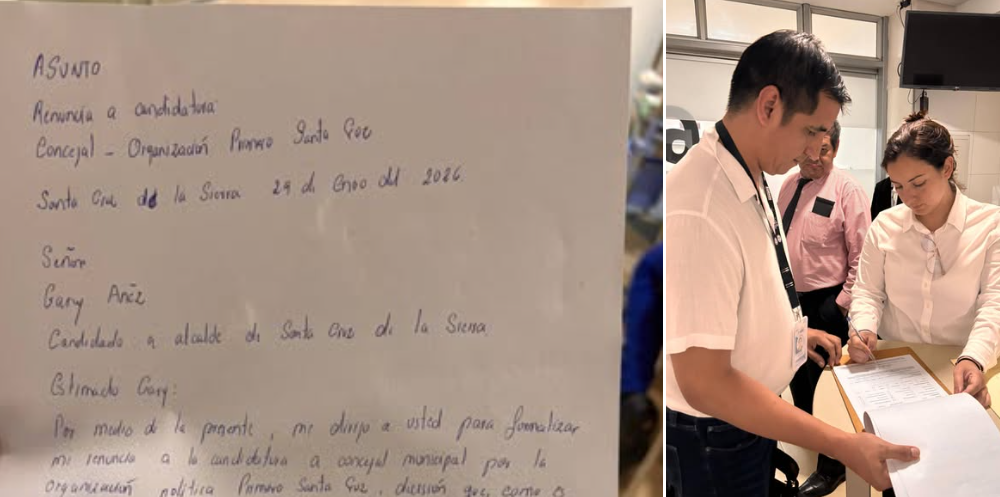 ASUNTO
Renuncia a candidatura
Concejal - Organización Primero Santa Cruz
Santa Cruz de la Sierra 29 de Enero del 2026.
Señor
Gary Añez
Candidado a alcalde de Santa Cruz de la Sierra
Estimado Gary:
Por medio de la presente, me dirijo a usted para formalizar
mi renuncia a la candidatura a concejal municipal por la
organización política Primero Santa Cruz, decisión que, como